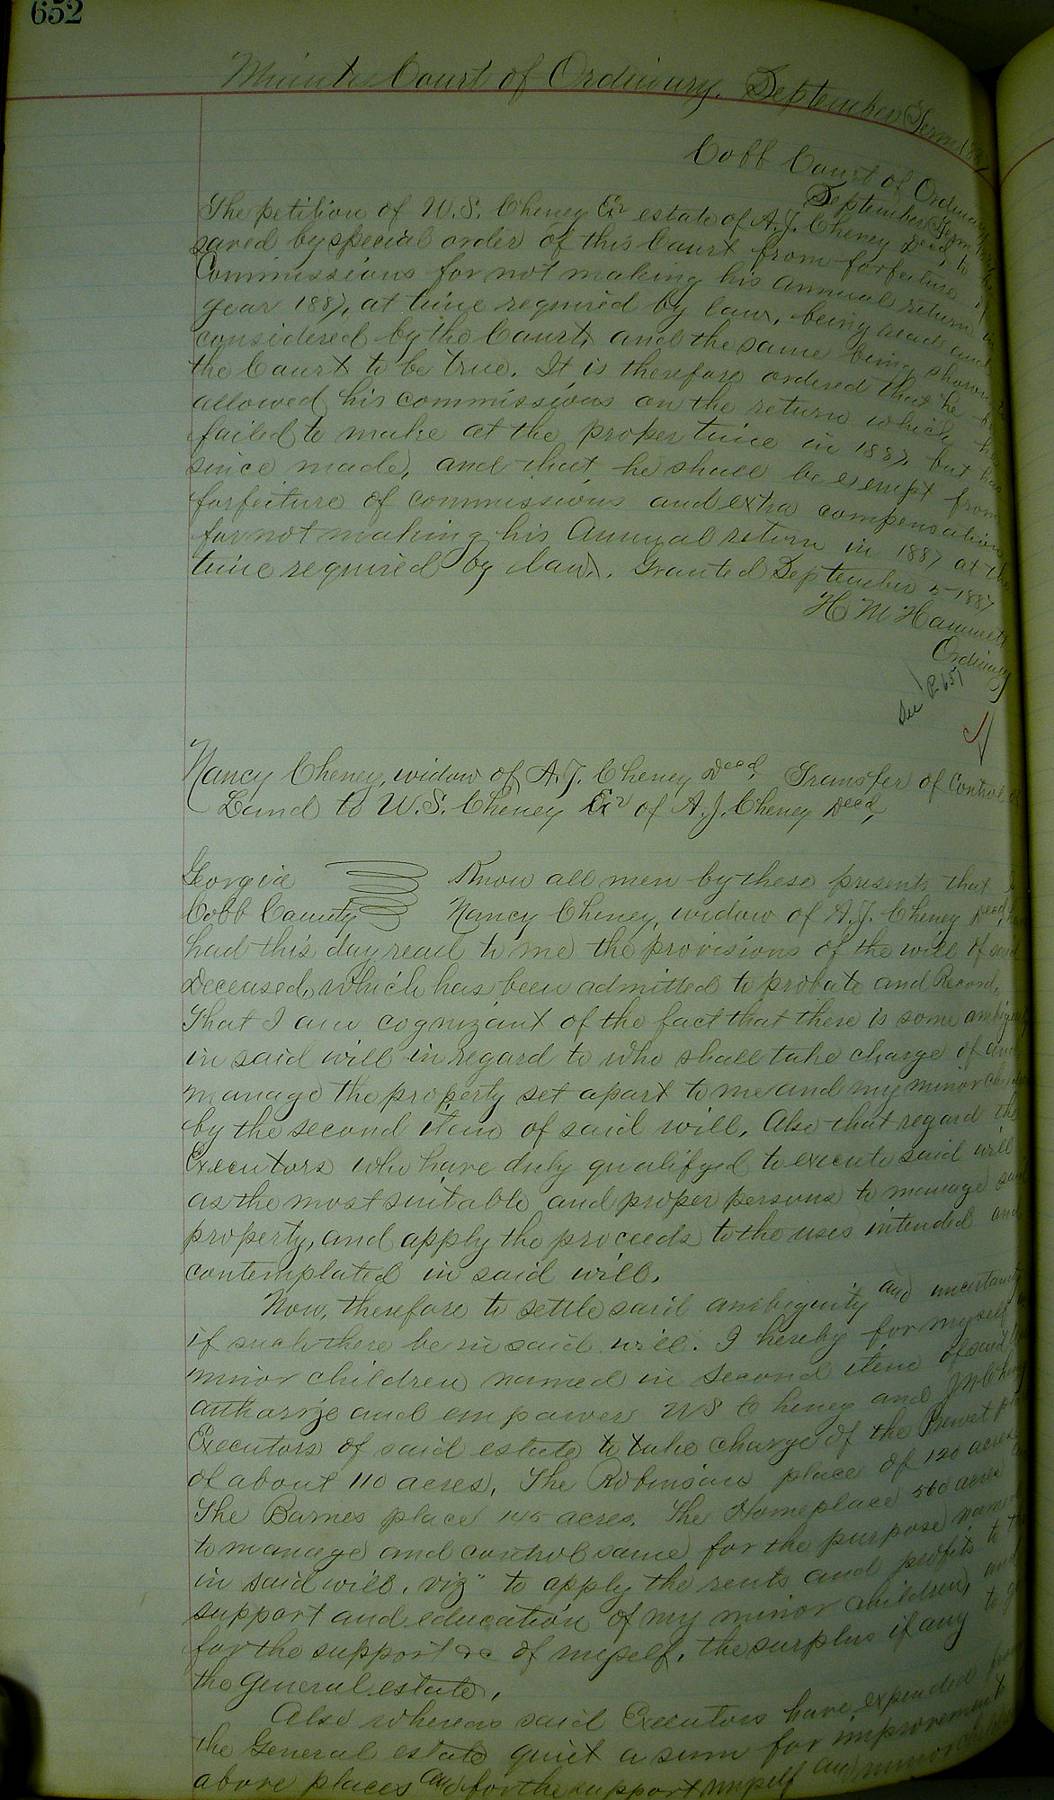 652
Minutes Court of Ordinary, September Term 188
Cobb Court of Ordinary
September Term
The petition of W.S. Cheney Exr estate of A.J. Cheney Decd, to
saved by special order of this Court from forfeiture
Commissions for not making his annual return
year 1887, at time required by law, being read and
considered by the Court, and the same being shown
the Court to be true. It is therefore ordered that he be
allowed his commissions on the return which he
failed to make at the proper time in 1887, but has
since made, and that he shall be exempt from
forfeiture of commissions and extra compensation
for not making his Annual return in 1887 at the
time required by law. Granted September 5 1887
H M Hammett
Ordinary
See P. 651
Nancy Cheney, widow of A.J. Cheney Decd, Transfer of Control
Land to W.S. Cheney Exr of A.J. Cheney Decd,
Georgia Know all men by these presents that I
Cobb County Nancy Cheney, widow of A.J. Cheney Decd,
had this day read to me the provisions of the will of said
Deceased, which has been admitted to probate and Record,
That I am cognizant of the fact that there is some ambiguity
in said will in regard to who shall take charge of and
manage the property set apart to me and my minor children
by the second item of said will, Also that regard the
Executors who have duly qualifyed to execute said will
as the most suitable and proper persons to manage said
property, and apply the proceeds to the uses intended and
contemplated in said will,
Now, therefore to settle said ambiguity and uncertainty
if such there be in said will. I hereby for myself
minor children named in second item of said
authorize and empower W S Cheney and
Executors of said estate to take charge of the
of about 110 acres, The Robinson place of 120 acres
The Barnes place 145 acres. The Homeplace 560 acres
to manage and control same for the purpose named
in said will, viz" to apply the rents and profits to the
support and education of my minor children, and
for the support &c of myself, the surplus if any to go
the General estate,
Also whereas said Executors have expended from
the General estate quiet a sum for improvements
above places and for the support myself and minor children